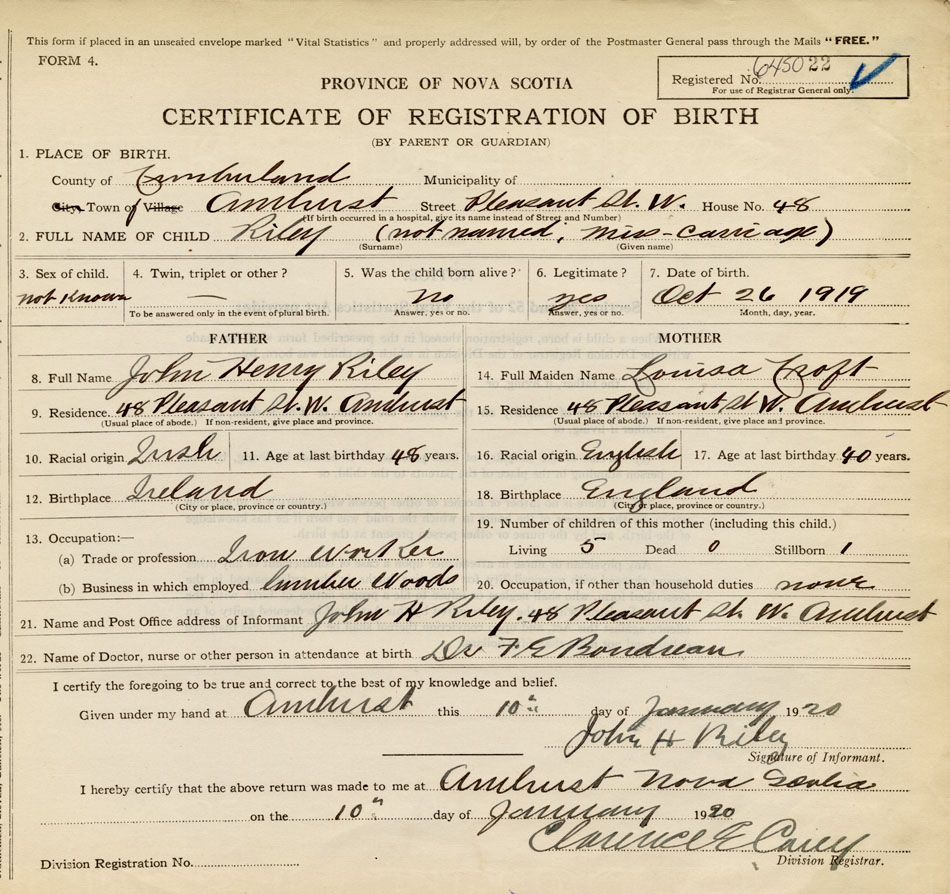 This form if placed in an unsealed envelope marked "Vital Statistics" and properly addressed will, by order of the Postmaster General pass through the Mails "FREE."
FORM 4.
Registered No. 645022
For use of Registrar General only.
PROVINCE OF NOVA SCOTIA
CERTIFICATE OF REGISTRATION OF BIRTH
(BY PARENT OR GUARDIAN)
1. PLACE OF BIRTH.
County of Cumberland Municipality of
City, Town of Village Amhurst Street Pleasant St. W. House No. 48
(If birth occurred in a hospital, give its name instead of Street and Number)
2. FULL NAME OF CHILD Riley (not named; miss-carriage)
(Surname) (Given name)
3. Sex of child. 4. Twin, triplet or other? 5. Was the child born alive? 6. Legitimate? 7. Date of birth.
not Known — no yes Oct 26 1919
To be answered only in the event of plural birth. Answer, yes or no. Answer, yes or no. Month, day, year.
FATHER MOTHER
8. Full Name John Henry Riley 14. Full Maiden Name Louisa Croft
9. Residence. 48 Pleasant St. W. Amhurst 15. Residence 48 Pleasant St W. Amhurst
(Usual place of abode.) If non-resident, give place and province. (Usual place of abode.) If non-resident, give place and province.
10. Racial origin Irish 11. Age at last birthday 48 years. 16. Racial origin English 17. Age at last birthday 40 years.
12. Birthplace Ireland 18. Birthplace England
(City or place, province or country.) (City or place, province or country.)
19. Number of children of this mother (including this child.)
13. Occupation:—
(a) Trade or profession Iron worker Living 5 Dead 0 Stillborn 1
(b) Business in which employed lumber Woods 20. Occupation, if other than household duties none
21. Name and Post Office address of Informant John H Riley. 48 Pleasant St. W. Amhurst
22. Name of Doctor, nurse or other person in attendance at birth Dr F E Boudreau
I certify the foregoing to be true and correct to the best of my knowledge and belief.
Given under my hand at Amhurst this 10th day of January 1920
John H Riley
Signature of Informant.
I hereby certify that the above return was made to me at Amhurst Nova Scotia
on the 10th day of January 1920
Clarence E Casey
Division Registration No. Division Registrar.